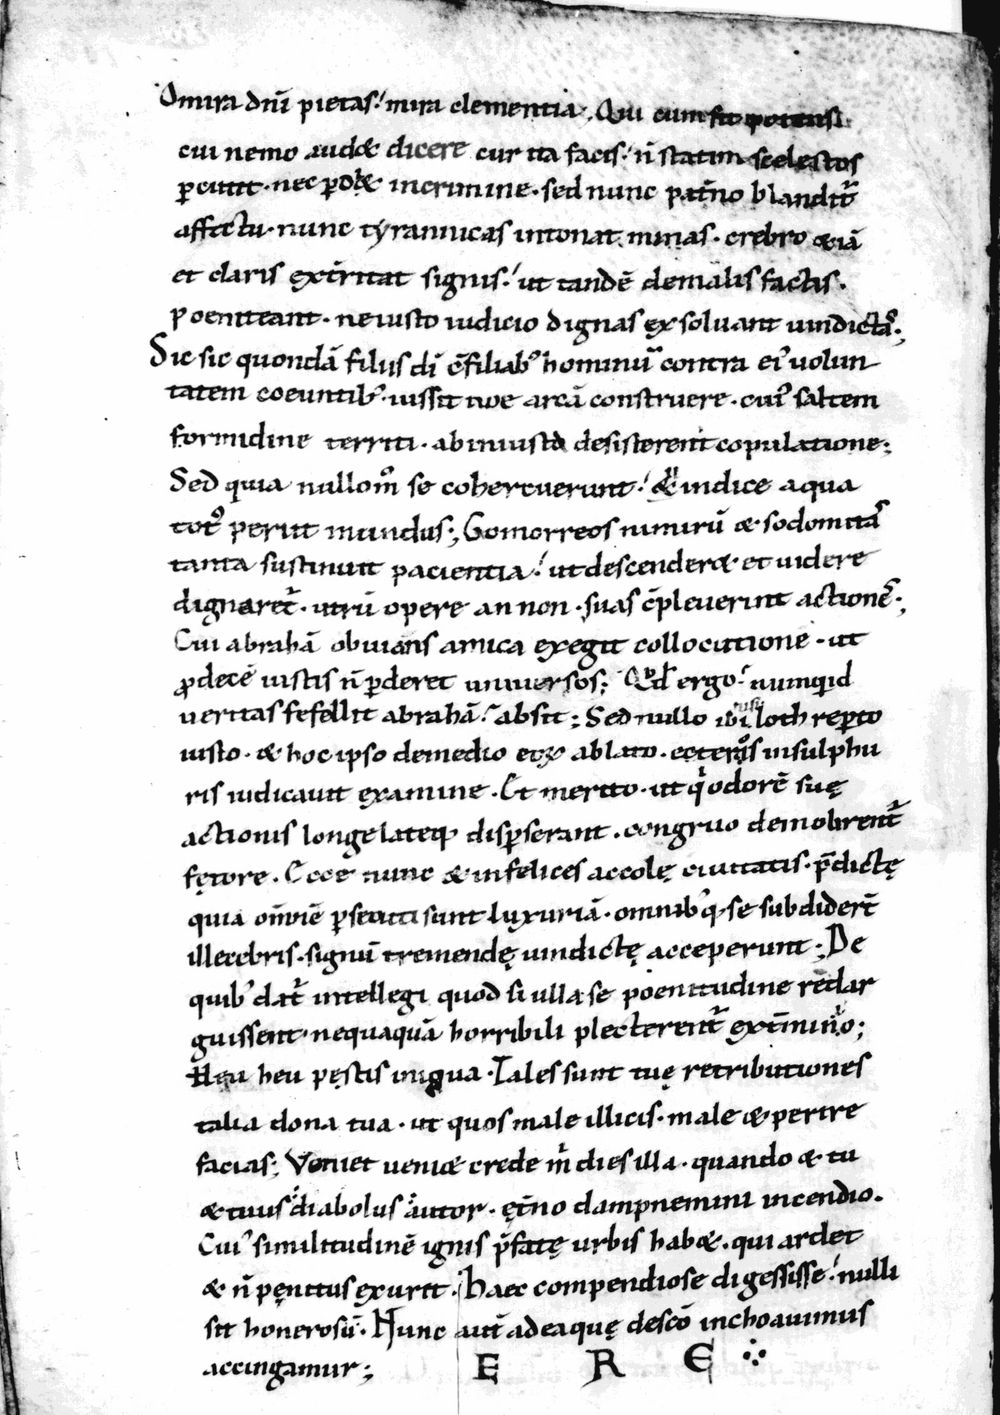 O mira dñi pietas! mira clementia. Qui cum sit potens
cui nemo audet dicere cur ita facis! ñ statim scelestos
ꝑcutit. nec ꝑdit& in crimine. sed nunc pat̄no blandit᷑
affectu. nunc tyrannicas intonat minas. crebro &iā
et claris ext̄ritat signis! ut tandē de malis factis.
poeniteant. ne iusto iudicio dignas exsoluant uindictas;
Sic sic quondā filiis dī c̄ filiab᾽ hominū contra ei᾽ uolun
tatem coeuntib᾽. iussit noe arcā construere. cui᾽ saltem
formidine territi. ab iniusta desisterent copulatione;
Sed quia nullom̊ se cohercuerunt! uindice aqua
tot᾽ periit mundus; Gomorreos nimirū & sodomitas
tanta sustinuit pacientia! ut descender& et uidere
dignaret᷑. utrū opere an non. suas c̄pleuerint actiones;
Cui abrahā obuians amica exegit collocutione. ut
ꝓ decē iustis ñ ꝑderet uniuersos; Qd̄ ergo! numquid
ueritas fefellit abrahā! absit; Sed nullo ibi nisi loth reꝑto
iusto. & hoc ipso de medio eoꝝ ablato. ceteros in sulphu
ris iudicauit examine. Et merito. ut qͥ odorē suę
actionis longe lateq; disꝑserant. congruo demolirent᷑
fętore. Ecce nunc & infelices accolę ciuitatis. p̄dictę
quia om̄iē ꝑsecuti sunt luxuriā. omnib᾽q; se subdiderē
illecebris. signū tremendę uindictę acceperunt; De
quib᾽ dat᷑ intellegi quod si ulla se poenitudine redar
guissent. nequaquā horribili plecterent᷑ ext̄minio;
Heu heu pęstis iniqua. Tales sunt tuę retributiones
talia dona tua. ut quos male illicis. male & perire
facias; Veniet ueniet crede m̄ dies illa. quando & tu
& tuus diabolus autor. ęt̄no dampnemini incendio.
Cui᾽ similitudinē ignis p̄fatę urbis hab&. qui ardet
& ñ pęnitus exurit. Haec compendiose digessisse! nulli
sit honerosū. Nunc aut̄ ad eaquę descō inchoauimus
accingamur; E R E